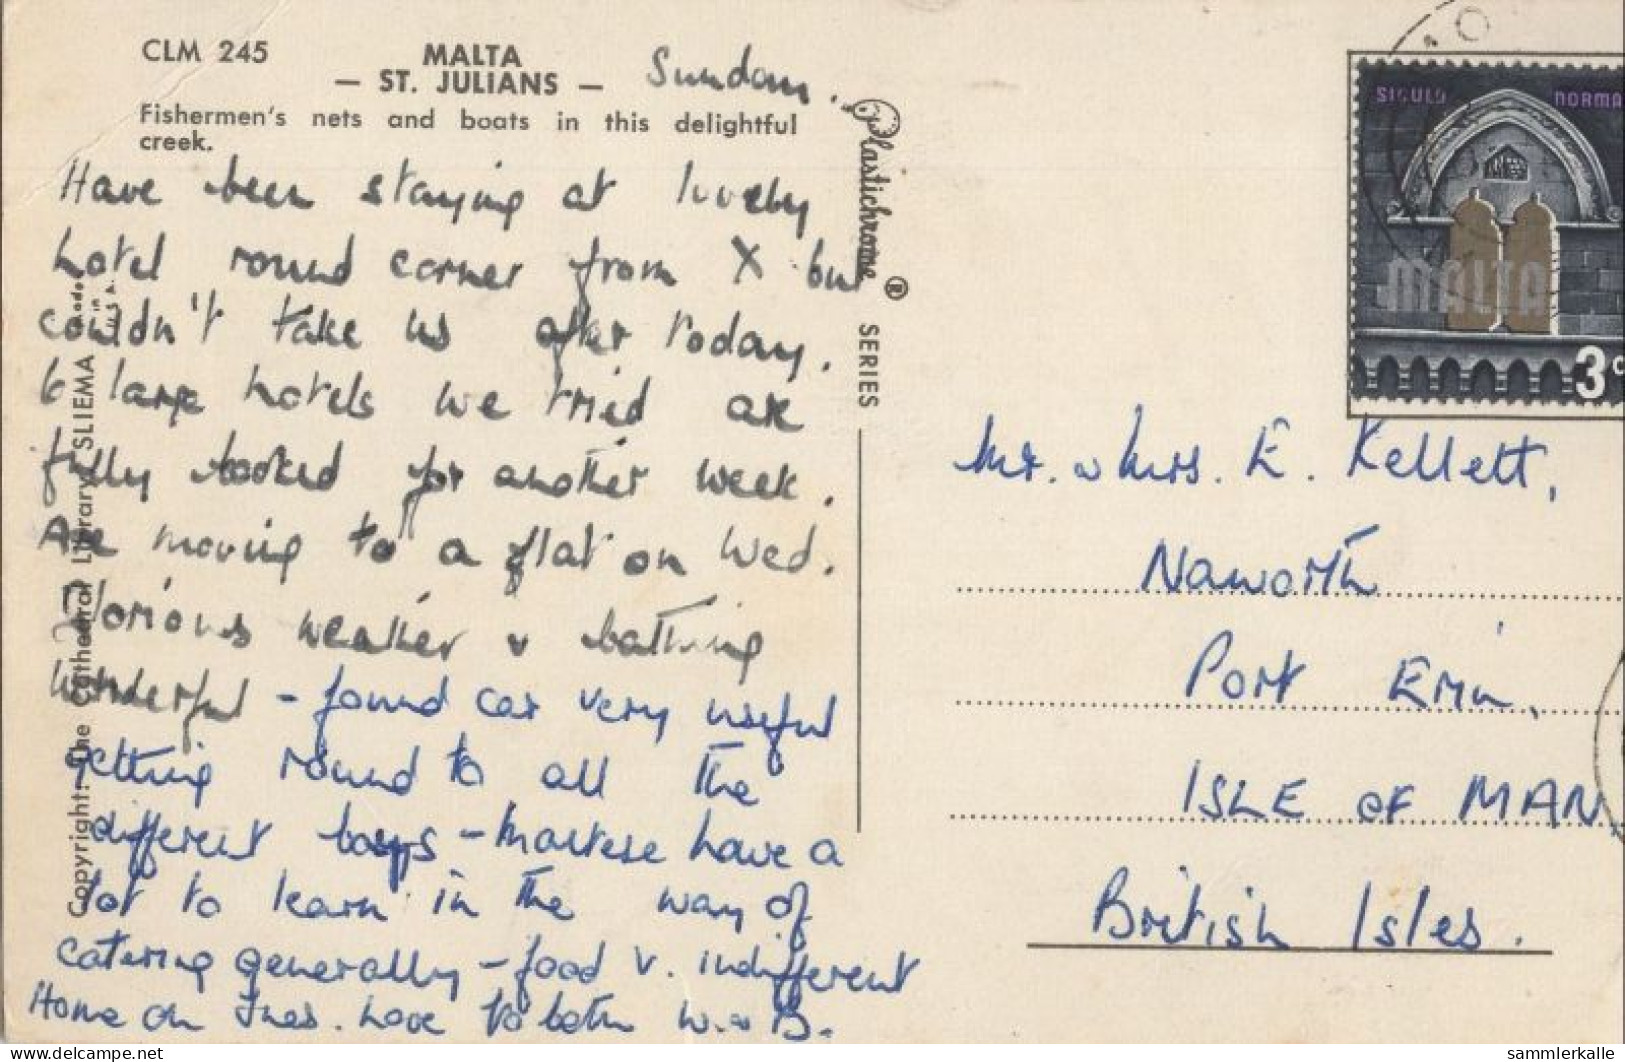 CLM 245
MALTA
— ST. JULIANS —
Fishermen's nets and boats in this delightful
creek.
Sunday.
Have been staying at lovely
hotel round corner from X but
couldn't take us after today.
6 large hotels we tried are
fully booked for another week.
Are moving to a flat on Wed.
Glorious weather & bathing
wonderful - found car very useful
getting round to all the
different bays - Maltese have a
lot to learn in the way of
catering generally - food v. indifferent
Home on Tues. Love to both W. & B.
Copyright: The Cathedral Library, SLIEMA
Made
in
U.S.A.
Plastichrome ® SERIES
SICULO NORMA
MALTA
3c
Mr. & Mrs. E. Kellett,
Naworth
Port Erin,
ISLE OF MAN,
British Isles.
sammlerkalle
www.delcampe.net